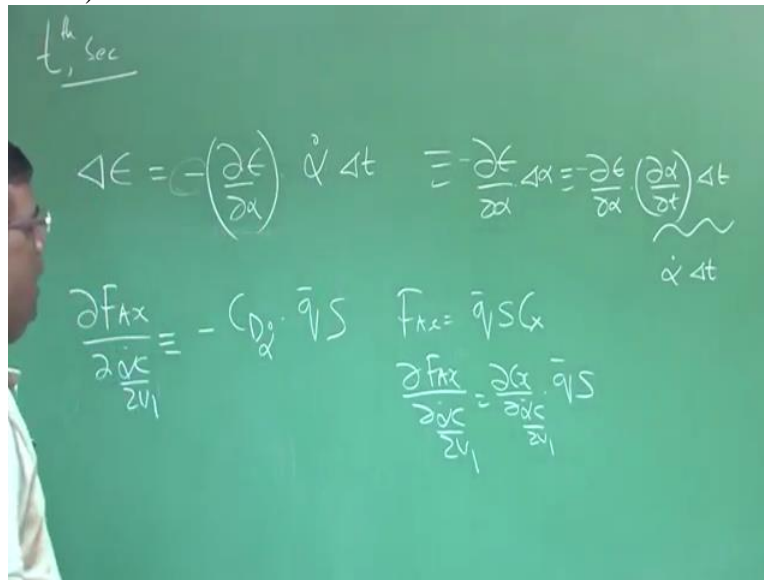 t^th, sec
Δε = -(∂ε/∂α) · α̇ Δt ≡ -∂ε/∂α · Δα ≡ -∂ε/∂α · (∂α/∂t) Δt
α̇ Δt
∂F_Ax / ∂(α̇c/2U_1) ≡ - C_Dα̇ · q̄ S F_Ax = q̄ S C_x
∂F_Ax / ∂(α̇c/2U_1) = ∂C_x / ∂(α̇c/2U_1) · q̄ S